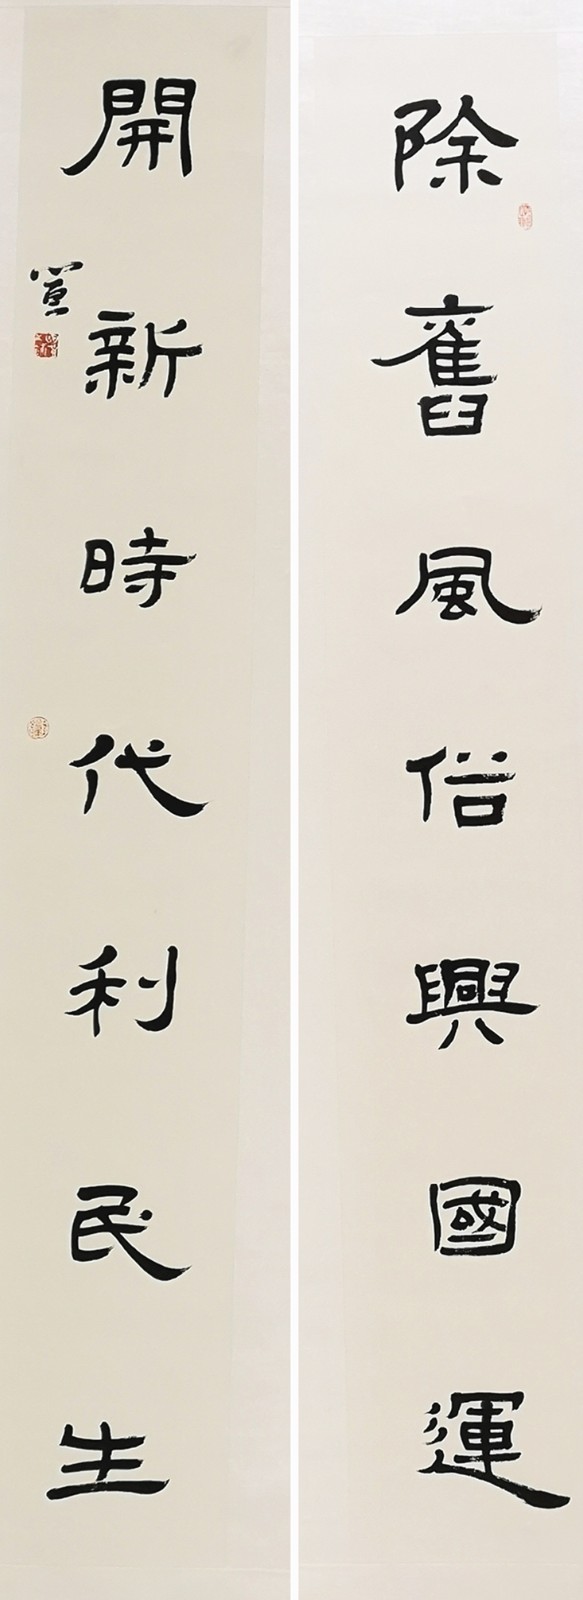 除舊風俗興國運
開新時代利民生